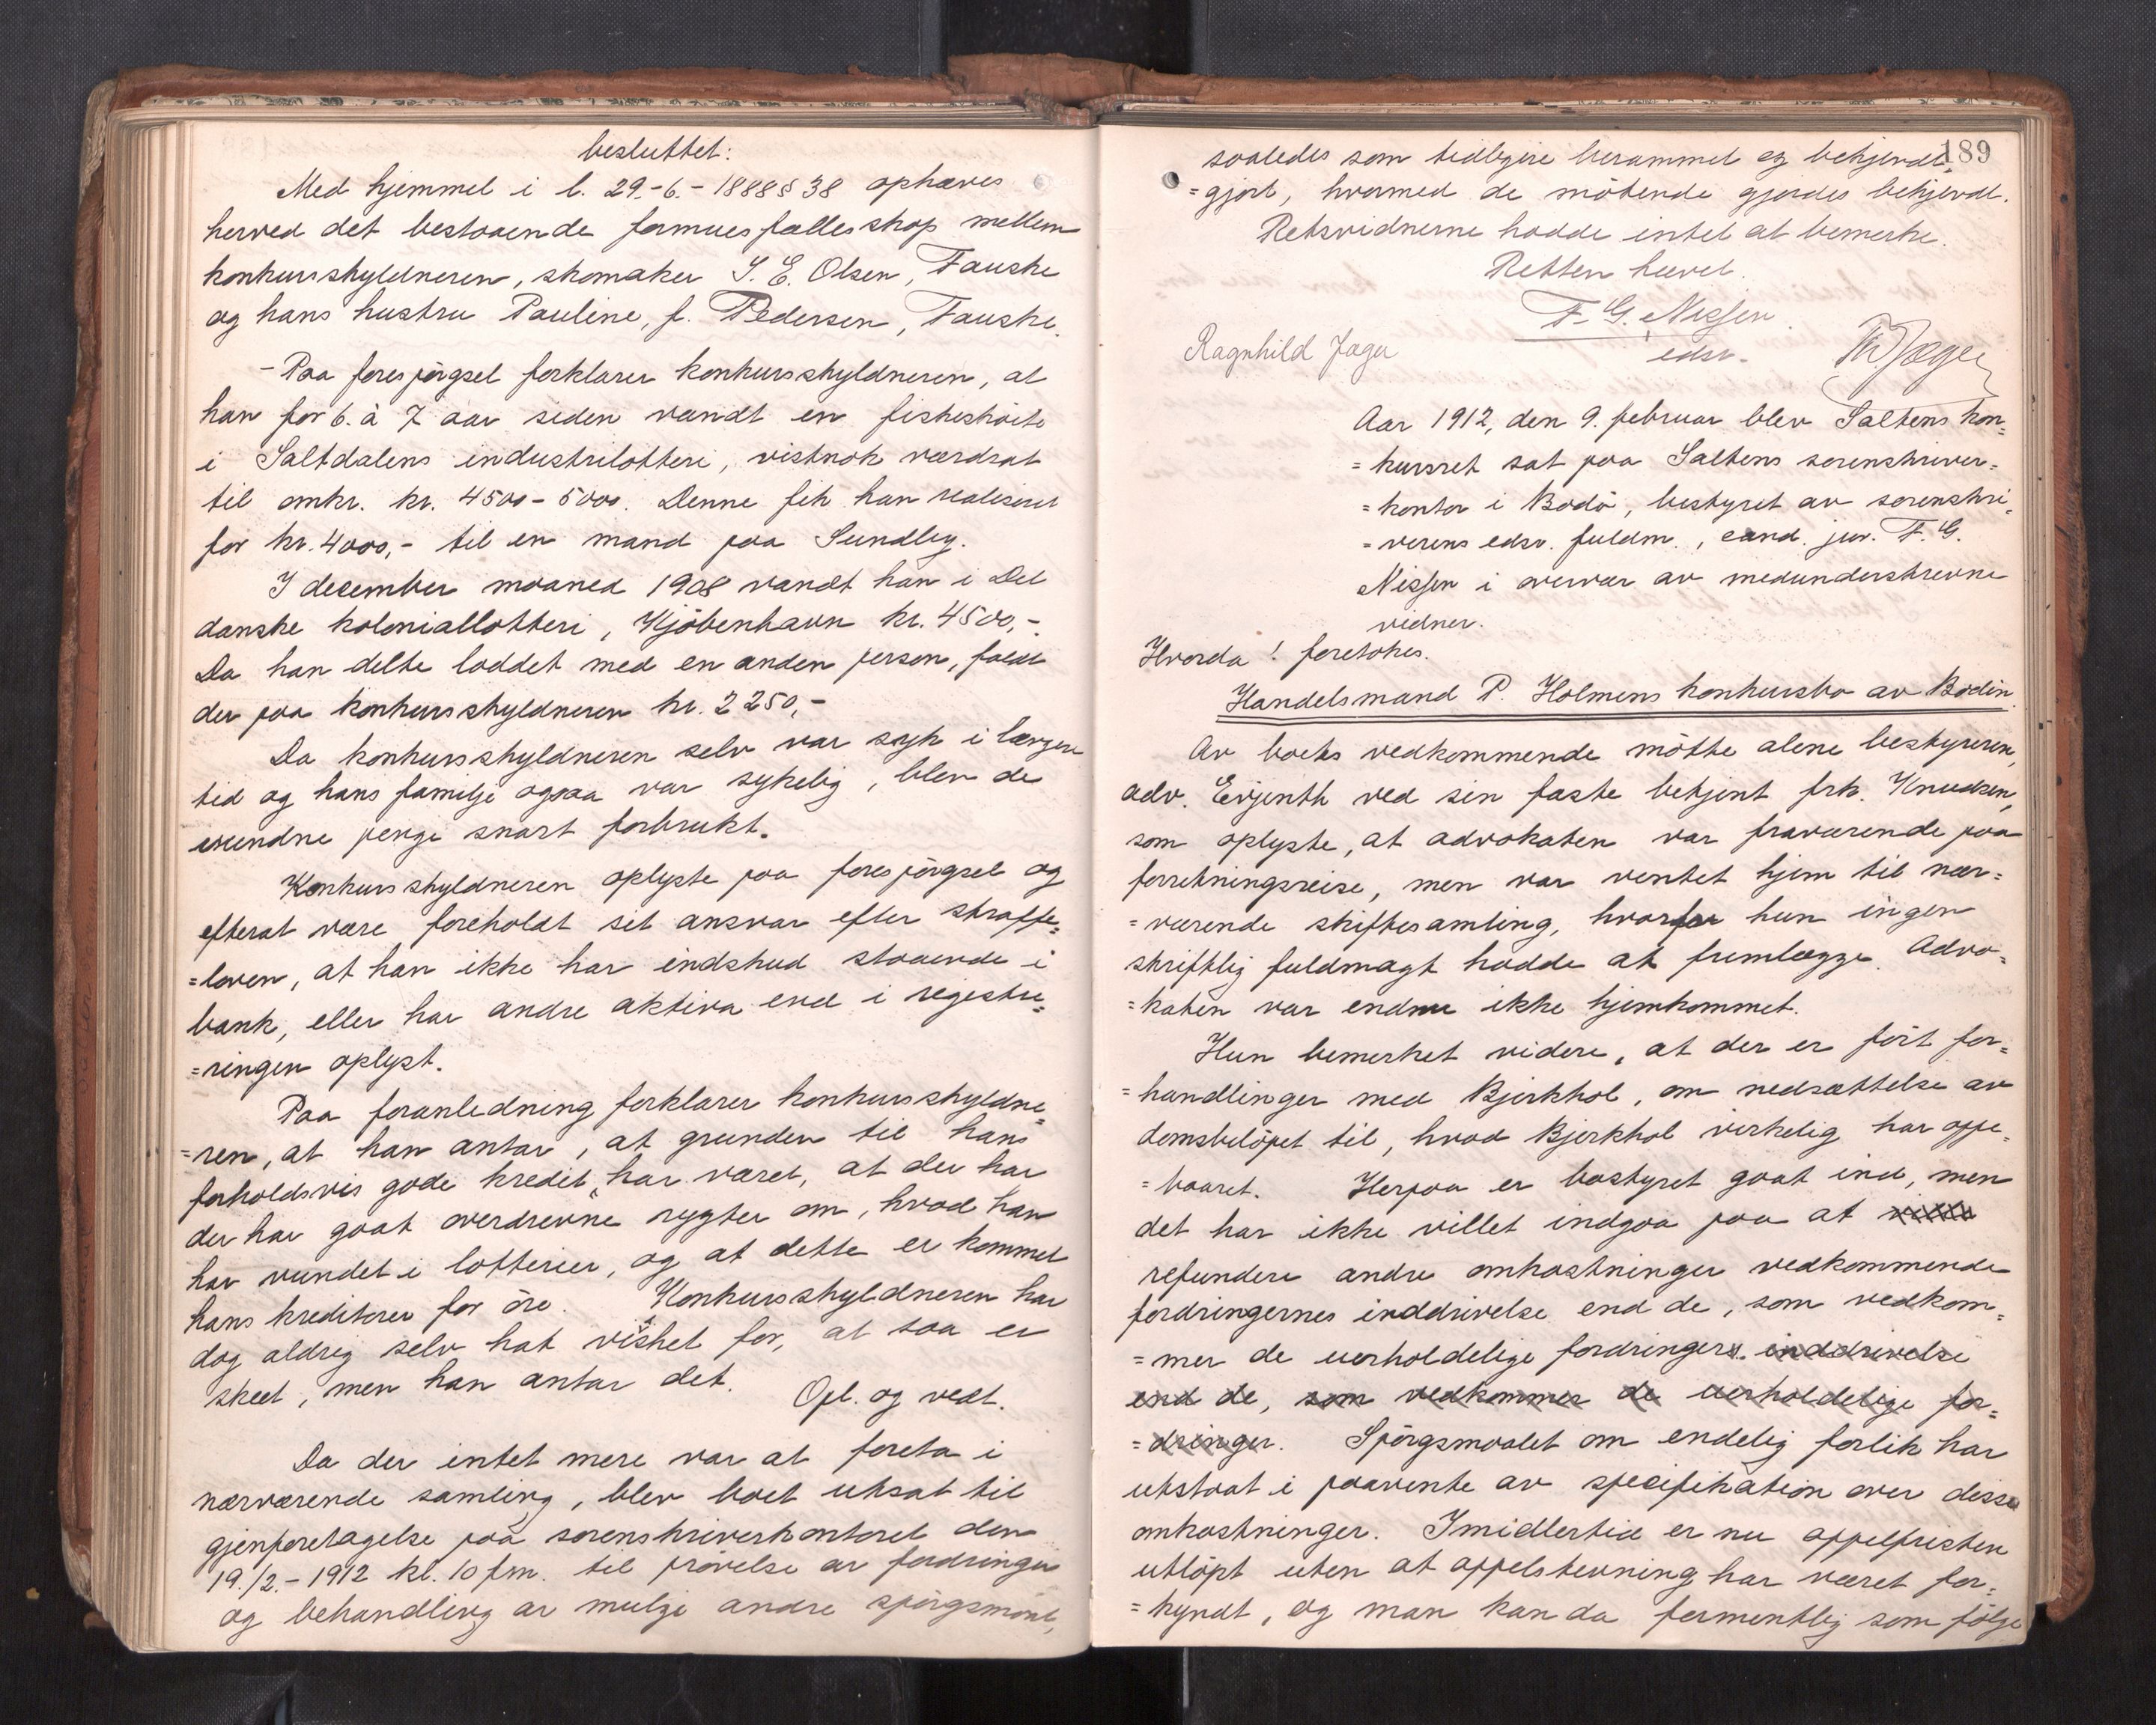 besluttet:
Med hjemmel i l. 29.-6.-1888 § 38 ophæves
herved det bestaaende formuesfællesskap mellem
konkursskyldneren, skomaker S. E. Olsen, Fauske
og hans hustru Pauline, f. Pedersen, Fauske.
- Paa forespørgsel forklarer konkursskyldneren, at
han for 6. à 7 aar siden vandt en fiskeskøite
i Saltdalens industrilotteri, vistnok værdsat
til omkr. kr. 4500 - 5000. Denne fik han realiseret
for kr. 4000,- til en mand paa Sundby.
I december maaned 1908 vandt han i Det
danske koloniallotteri, Kjøbenhavn kr. 4500,-.
Da han delte loddet med en anden person, faldt
der paa konkursskyldneren kr. 2250,-
Da konkursskyldneren selv var syk i længere
tid og hans familje ogsaa var sykelig, blev de
vundne penge snart forbrukt.
Konkursskyldneren oplyste paa forespørgsel og
efterat være foreholdt sit ansvar efter straffe=
=loven, at han ikke har indskud staaende i
bank, eller har andre aktiva end i registre=
=ringen oplyst.
Paa foranledning forklarer konkursskyldne=
=ren, at han antar, at grunden til hans
forholdsvis gode kredit, har været, at der har
der har gaat overdrevne rygter om, hvad han
har vundet i lotterier, og at dette er kommet
hans kreditorer for øre. Konkursskyldneren har
dog aldrig selv hat vished for, at saa er
skeet, men han antar det.
Opl. og vedt.
Da der intet mere var at foreta i
nærværende samling, blev boet utsat til
gjenforetagelse paa sorenskriverkontoret den
19./2.-1912 kl. 10 fm. til prøvelse av fordringer
og behandling av mulge andre spørgsmaal,
189
saaledes som tidligere berammet og bekjendt=
=gjort, hvormed de møtende gjordes bekjendt.
Retsvidnerne hadde intet at bemerke.
Retten hævet.
F. G. Nissen
edsv.
Ragnhild Jæger
Th. Jæger
Aar 1912, den 9. februar blev Saltens kon=
=kursret sat paa Saltens sorenskriver=
=kontor i Bodø, bestyret av sorenskri=
=verens edsv. fuldm., cand. jur. F. G.
Nissen i overvær av medunderskrevne
vidner.
Hvorda! foretokes.
Handelsmand P. Holmens konkursbo av Bodin.
Av boets vedkommende møtte alene bestyreren,
adv. Evjenth ved sin faste betjent frk. Knudsen,
som oplyste, at advokaten var fraværende paa
forretningsreise, men var ventet hjem til nær=
=værende skiftesamling, hvorfor hun ingen
skriftlig fuldmagt hadde at fremlægge. Advo=
=katen var endnu ikke hjemkommet.
Hun bemerket videre, at der er ført for=
=handlinger med Bjerkhol, om nedsættelse av
domsbeløpet til, hvad Bjerkhol virkelig har oppe=
=baaret. Herpaa er bostyret gaat ind, men
det har ikke villet indgaa paa at
refundere andre omkostninger vedkommende
fordringernes inddrivelse end de, som vedkom=
=mer de uerholdelige fordringers. inddrivelse
end de, som vedkommer de uerholdelige for=
=dringer. Spørgsmaalet om endelig forlik har
utstaat i paavente av specifikation over disse
omkostninger. Imidlertid er nu appelfristen
utløpt uten at appelstevning har været for=
=kyndt, og man kan da formentlig som følge